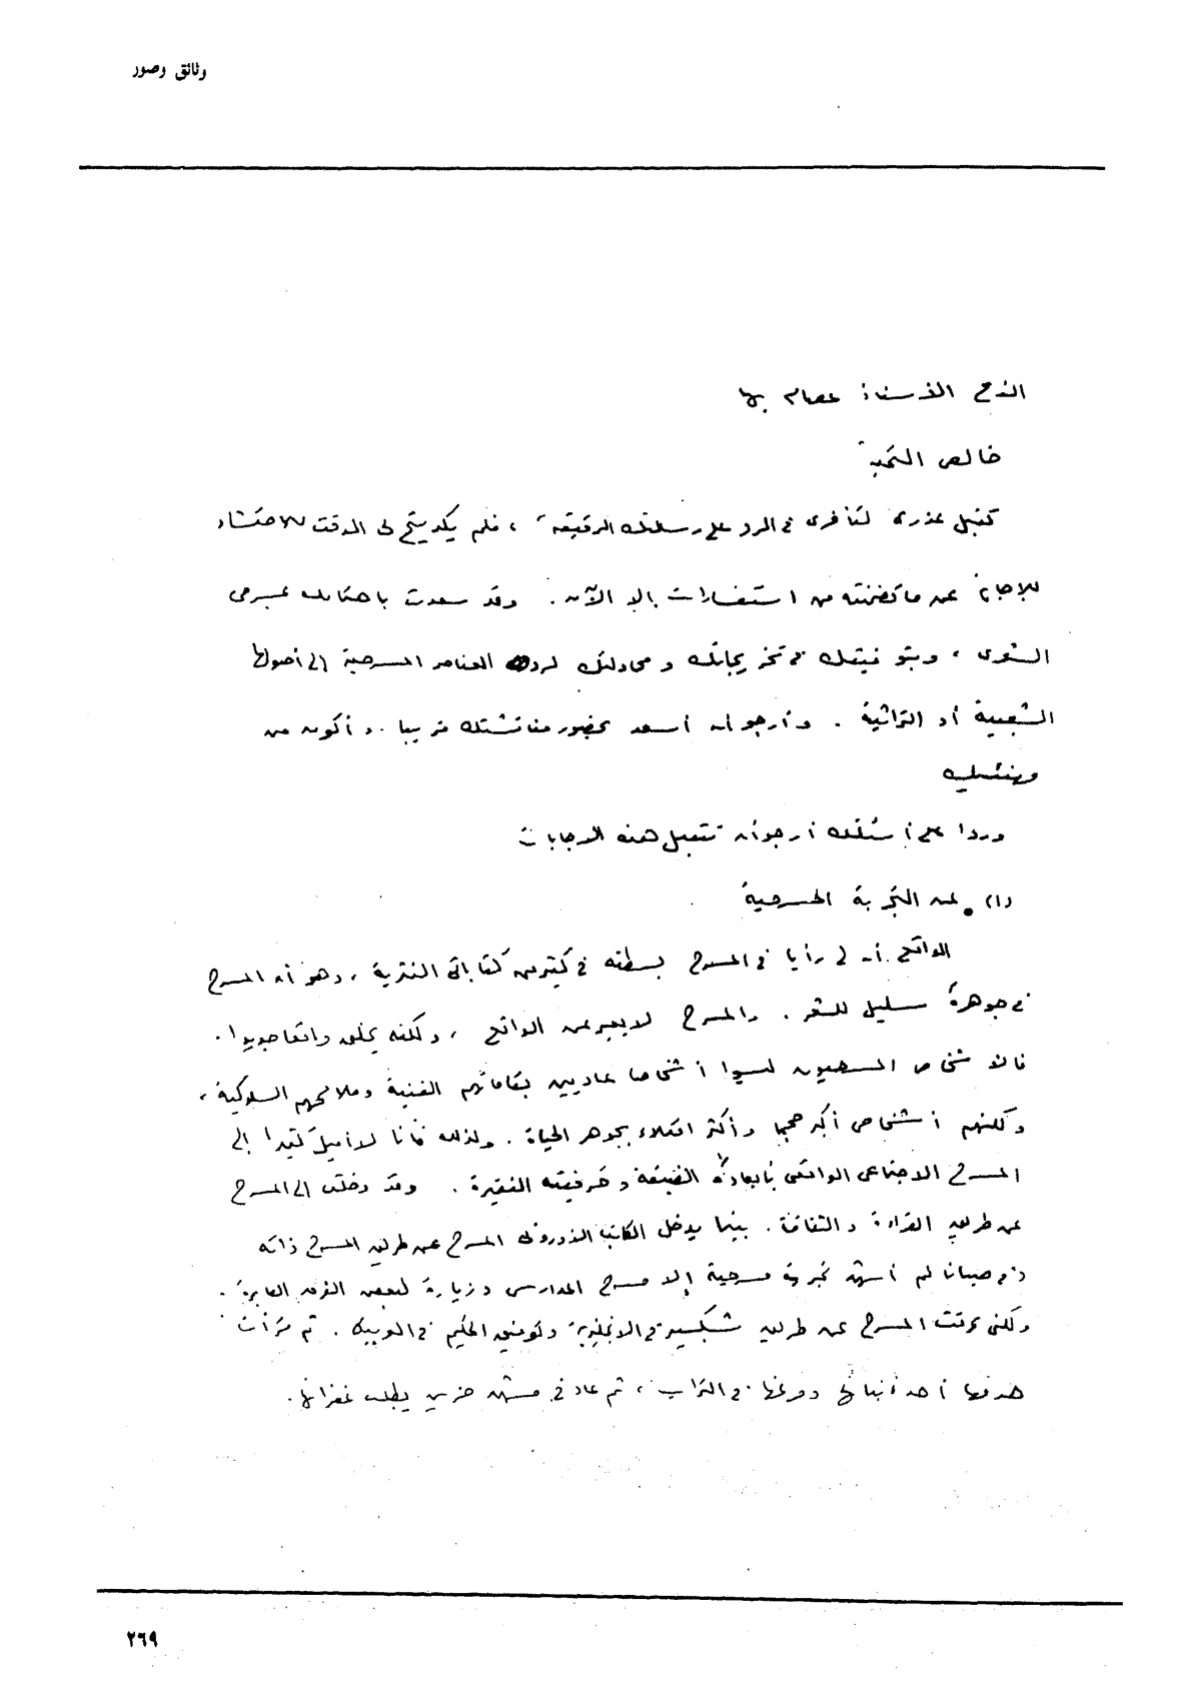 وثائق وصور
الأخ الأستاذ عصام بهي
خالص التحية
تقبل عذرى لتأخرى فى الرد على رسالتك الرقيقة ، فلم يكد يتح لى الوقت للاحتشاد
للإجابة عن ما تضمنته من استفسارات إلا الآن . وقد سعدت باهتمامك بمسرحى
الشعرى ، وبتوفيقك فى تخريجاتك ومحاولتك لرد العناصر المسرحية إلى أصولها
الشعبية أو التراثية . وأرجو أن أسعد بحضور مناقشتك قريبا . وأكون من
مهنئيك
وردا على أسئلتك أرجو أن تتقبل هذه الاجابات
(١) عن التجربة المسرحية
الواقع أن لى رأيا فى المسرح بسطته فى كثير من كتاباتى النثرية ، وهو أن المسرح
فى جوهره سليل للشعر . والمسرح لا يعبر عن الواقع ، ولكنه يخلق واقعا جديدا .
فالأشخاص المسرحيون ليسوا أشخاصا عاديين بقاماتهم الفنية وملامحهم السلوكية ،
ولكنهم أشخاص أكبر حجما وأكثر امتلاء بجوهر الحياة . ولذلك فأنا لا أميل كثيرا إلى
المسرح الاجتماعى الواقعى بأبعاده الضيقة وحرفيته الفقيرة . وقد دخلت إلى المسرح
عن طريق القراءة والثقافة . بينما يدخل الكاتب الأوروبى المسرح عن طريق المسرح ذاته
وفى صبانا لم أشهد تجربة مسرحية إلا مسرح المدارس وزيارة لبعض الفرق العابرة .
ولكنى عرفت المسرح عن طريق شكسبير فى الانجليزية وتوفيق الحكيم فى العربية . ثم قرأت
هدفها أحد أنبائها ومرغها فى التراب ، ثم عاد فى مشهد حزين يطلب غفرانها .
٢٦٩